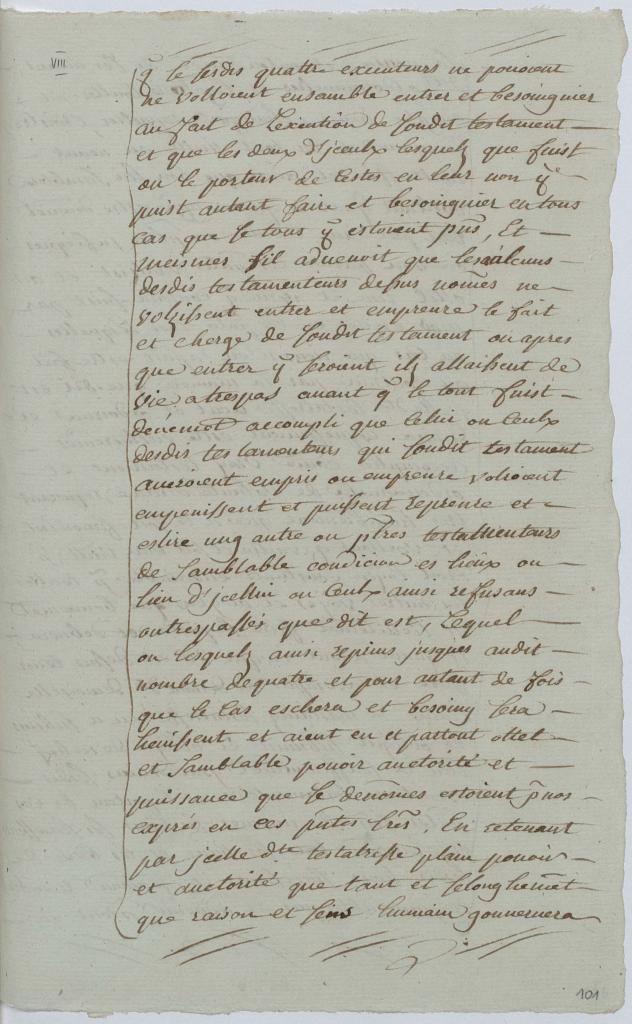 VIII
q̃ se sesdis quattre executeurs ne pouoient
ne volloient ensamble entrer et besoingnier
au fait de lexecution de sondit testament
et que les deux d'jceulx lesquelz que fuist
ou le porteur de cestes en leur non y
puist autant faire et besoingnier en tous
cas que se tous y estoient pñs, Et
meismes sil aduenoit que les alcuns
desdis testamenteurs dessus nom̃es ne
volsissent entrer et emprenre le fait
et cherge de sondit testament ou apres
que entrer y seroient ilz allaissent de
vie a trespas auant q̃ le tout fuist
deuem̃t accompli que celui ou ceulx
desdis testamenteurs qui sondit testament
aueroient empris ou emprenre volroient
et puissent reprenre et
eslire ung autre ou pl̃res testamenteurs
de samblable condicion es lieux ou
lieu d'jcellui ou ceulx ainsi refusans
ou trespassés que dit est, Lequel
ou lesquelz ainsi reprins jusques audit
nombre de quatre et pour autant de fois
que le cas eschera et besoing sera
heuissent et aient en et partout ottel
et samblable pouoir auctorité et
puissance que se denom̃es estoient
exprés en ces pñtes lr̃es, En retenant
par jcelle d.te testatresse plain pouoir
et auctorité que tant et si longhem̃t
que raison et sens humain gouuernera
101